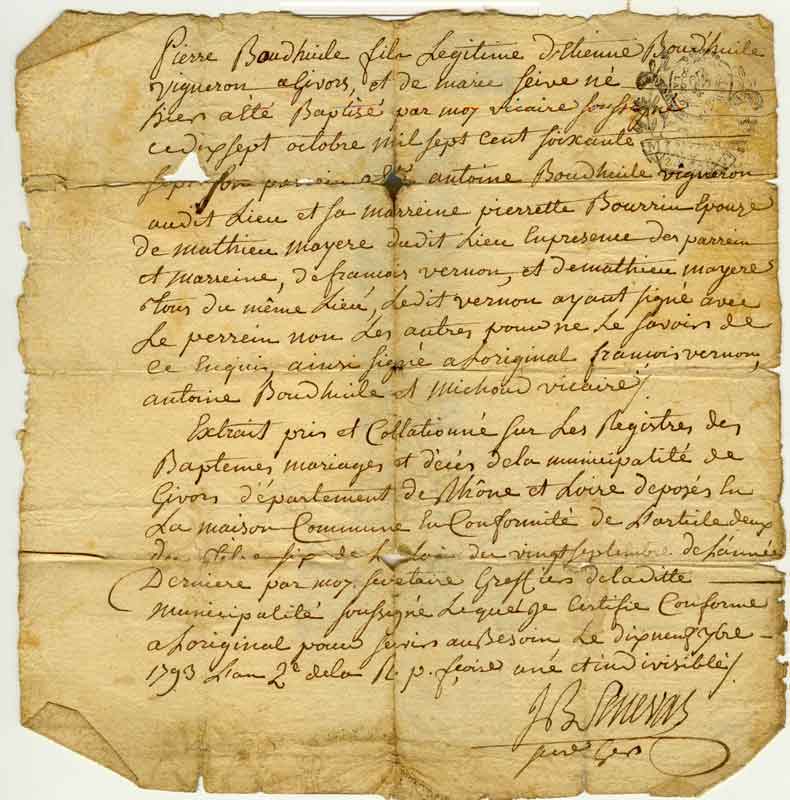 Pierre Boudhuile fils Legitime d'Etienne Boudhuile
vigneron a Givors, et de marie seive né
hier a été Baptisé par moy vicaire soussigné
ce dix sept octobre mil sept cent soixante
sept son parrein antoine Boudhuile vigneron
audit Lieu et sa marreine pierrette Bourrin Epouze
de mathieu mayere dudit Lieu Enpresence des parrein
et marreine, de francois vernon, et de mathieu mayere
tous du même Lieu, Ledit vernon ayant signé avec
Le perrein non Les autres pour ne Le savoir de
ce Enquis, ainsi signé a Loriginal francois vernon,
antoine Boudhuile et Michoud vicaire/.
Extrait pris et Collationné sur Les Registres des
Baptemes mariages et décés de la municipalité de
Givors département de Rhône et Loire deposés En
La maison Commune En Conformité de L'article deux
du titre six de La loi du vingt septembre de L'année
Derniere par moy secretaire Greffier de la ditte
municipalité soussigné Lequel je Certifie Conforme
a Loriginal pour servir au Besoin Le dix neuf
1793 L'an 2e de la R. p. f.çoise une et indivisible/.
J B Senevas